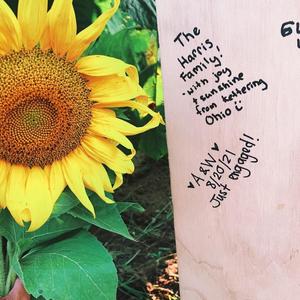 The
Harris
Family!
- with joy
+ sunshine
from Kettering
Ohio :)
♥ A & W ♥
8/20/21
Just engaged!